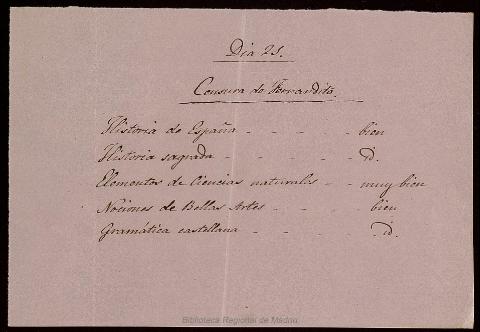 Dia 25.
Censura de Fernandito.
Historia de España - - - - bien
Historia sagrada - - - - - id.
Elementos de Ciencias naturales - - muy bien
Nociones de Bellas Artes - - - - bien
Gramática castellana - - - - - id.
Biblioteca Regional de Madrid